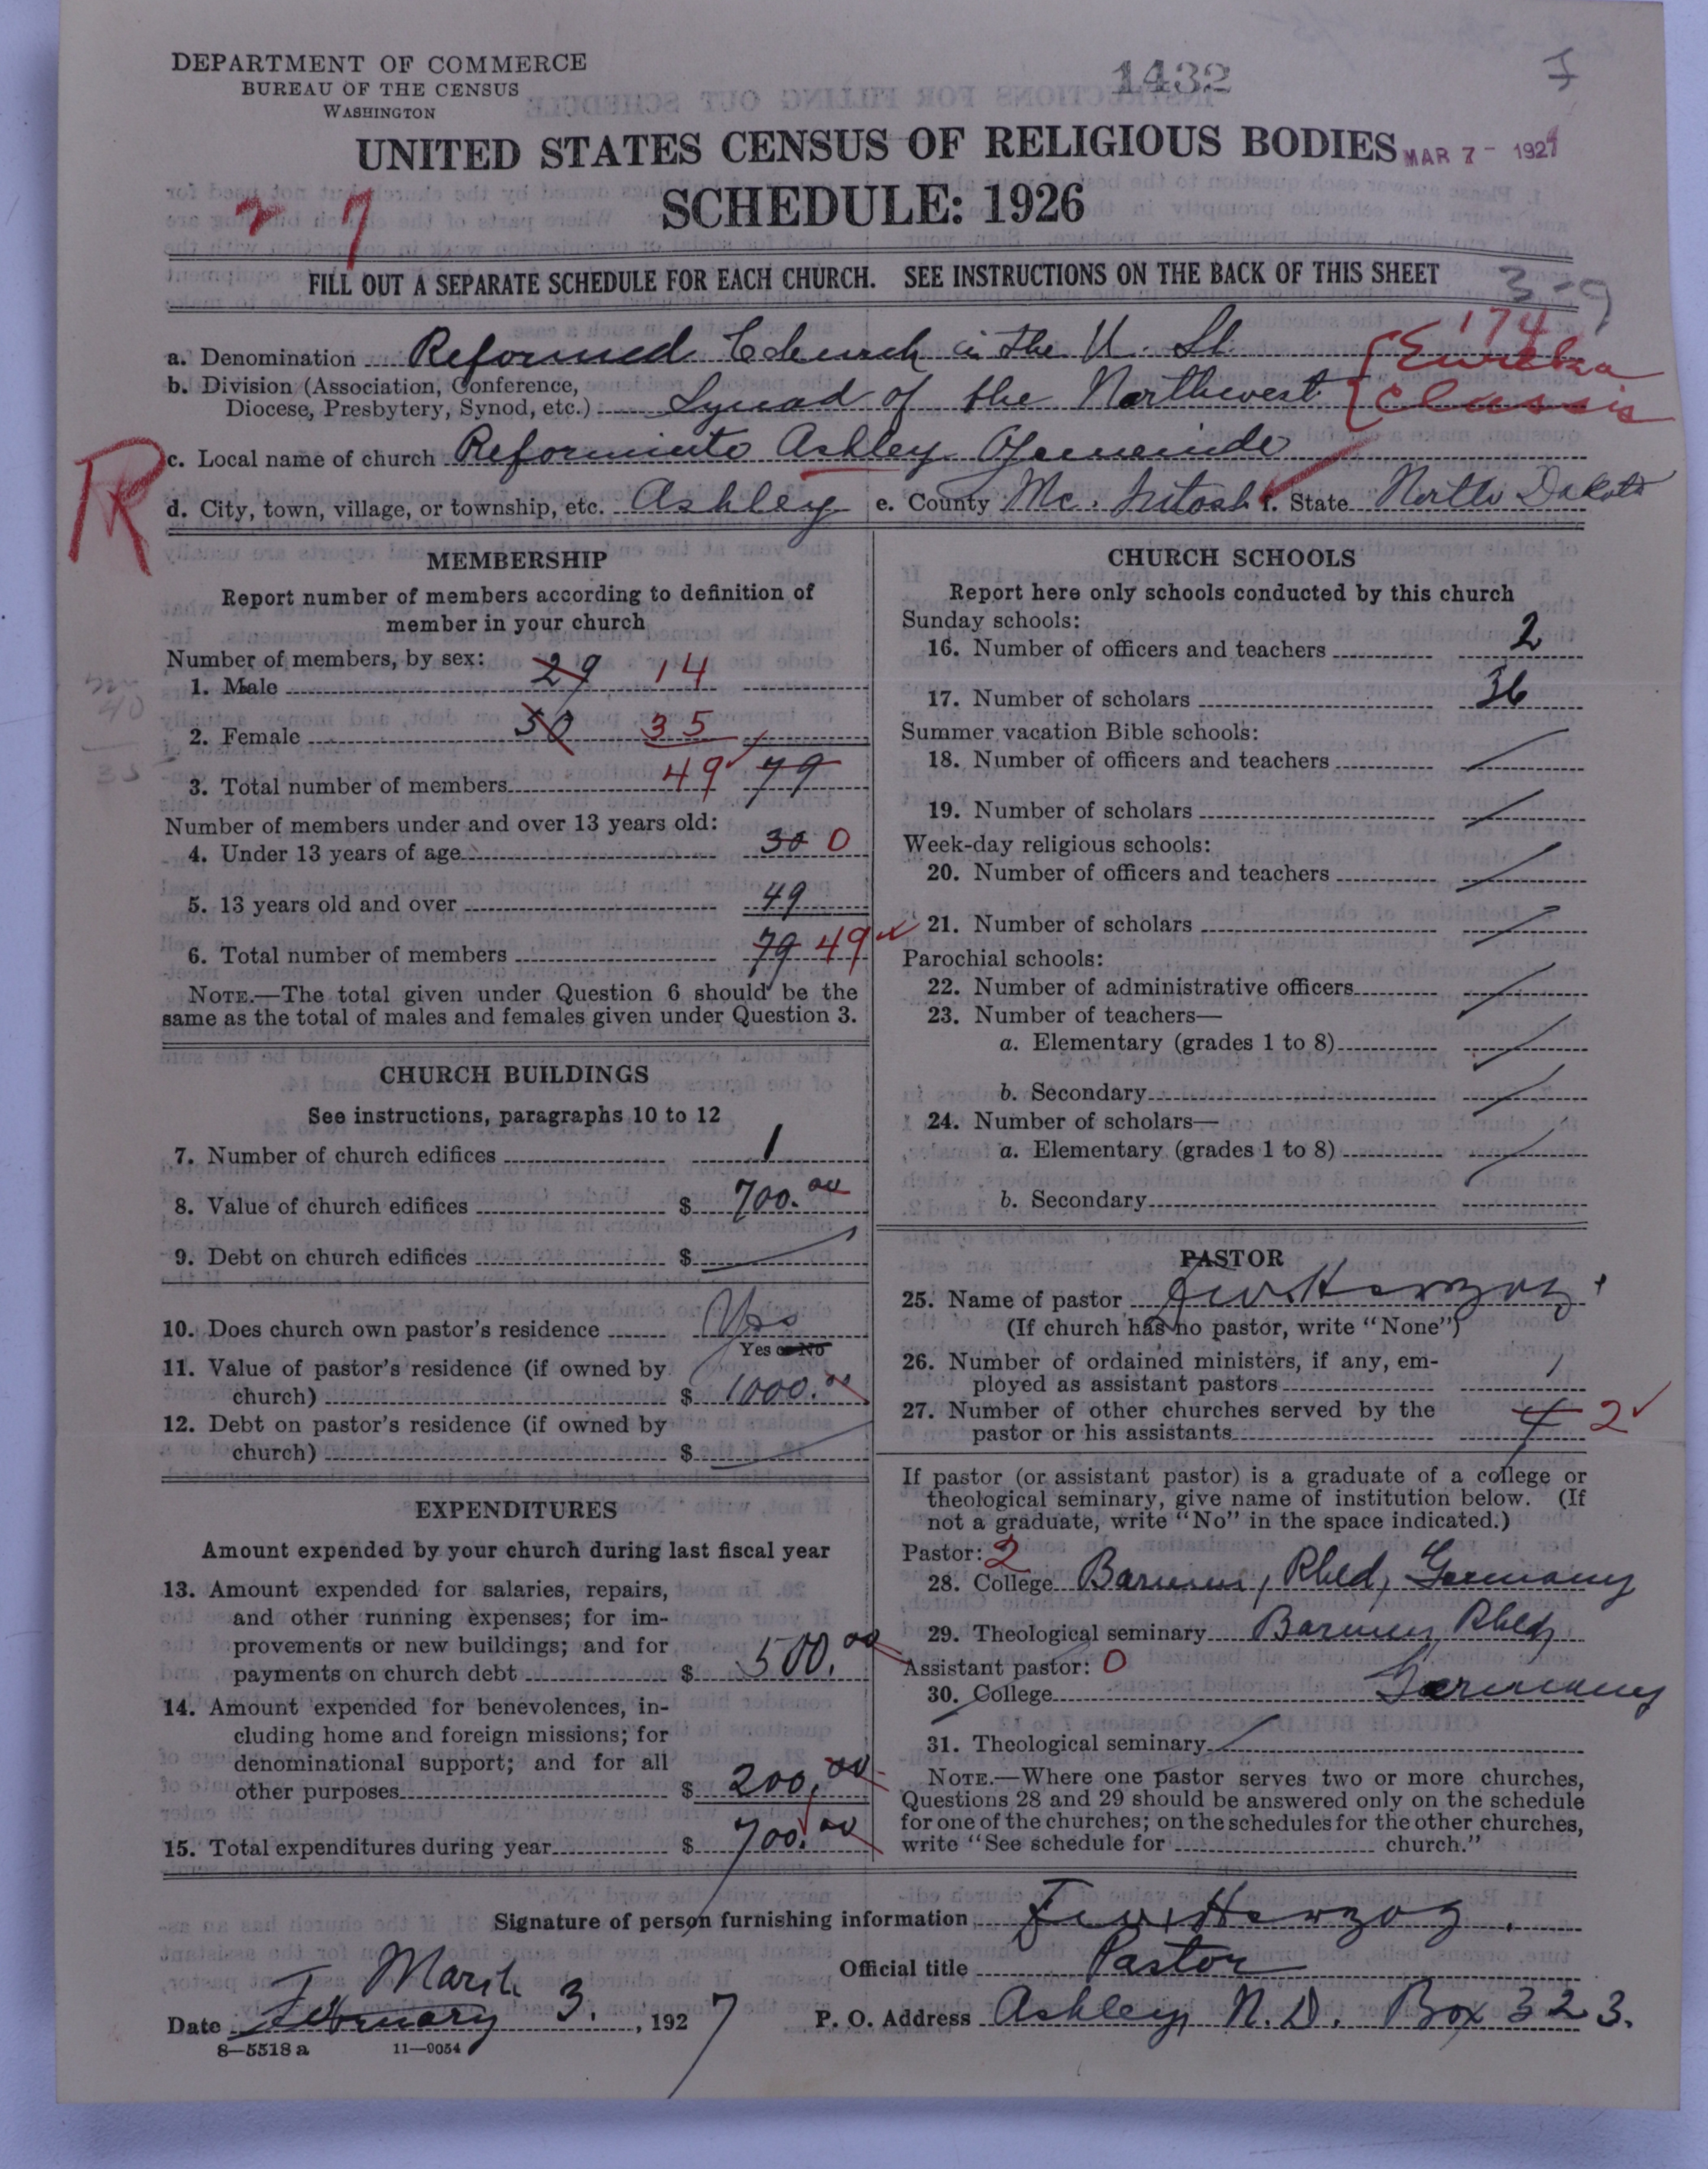 DEPARTMENT OF COMMERCE
BUREAU OF THE CENSUS
WASHINGTON
1432
UNITED STATES CENSUS OF RELIGIOUS BODIES
MAR 7 - 1927
SCHEDULE: 1926
2 7
FILL OUT A SEPARATE SCHEDULE FOR EACH CHURCH. SEE INSTRUCTIONS ON THE BACK OF THIS SHEET
3-9
174
a. Denomination Reformed Church in the U. St. Eureka
b. Division (Association, Conference,
Diocese, Presbytery, Synod, etc.) Synod of the Northwest Classis
R
c. Local name of church Ashley Gemeinde
d. City, town, village, or township, etc. Ashley e. County Mc. Intosh f. State North Dakota
MEMBERSHIP
Report number of members according to definition of
member in your church
Number of members, by sex:
1. Male 29 14
2. Female 50 35
3. Total number of members 49 79
Number of members under and over 13 years old:
4. Under 13 years of age 30 0
5. 13 years old and over 49
6. Total number of members 79 49
NOTE.—The total given under Question 6 should be the
same as the total of males and females given under Question 3.
CHURCH BUILDINGS
See instructions, paragraphs 10 to 12
7. Number of church edifices 1
8. Value of church edifices $ 700.00
9. Debt on church edifices $
10. Does church own pastor's residence Yes
Yes or No
11. Value of pastor's residence (if owned by
church) $ 1000.00
12. Debt on pastor's residence (if owned by
church) $
EXPENDITURES
Amount expended by your church during last fiscal year
13. Amount expended for salaries, repairs,
and other running expenses; for im-
provements or new buildings; and for
payments on church debt $ 500.00
14. Amount expended for benevolences, in-
cluding home and foreign missions; for
denominational support; and for all
other purposes $ 200.00
15. Total expenditures during year $ 700.00
CHURCH SCHOOLS
Report here only schools conducted by this church
Sunday schools:
16. Number of officers and teachers 2
17. Number of scholars 36
Summer vacation Bible schools:
18. Number of officers and teachers
19. Number of scholars
Week-day religious schools:
20. Number of officers and teachers
21. Number of scholars
Parochial schools:
22. Number of administrative officers
23. Number of teachers—
a. Elementary (grades 1 to 8)
b. Secondary
24. Number of scholars—
a. Elementary (grades 1 to 8)
b. Secondary
PASTOR
25. Name of pastor Herzog
(If church has no pastor, write "None")
26. Number of ordained ministers, if any, em-
ployed as assistant pastors
27. Number of other churches served by the
pastor or his assistants 4 2
If pastor (or assistant pastor) is a graduate of a college or
theological seminary, give name of institution below. (If
not a graduate, write "No" in the space indicated.)
Pastor: 2
28. College Barmen, Rhld, Germany
29. Theological seminary Barmen Rhld,
Assistant pastor: 0 Germany
30. College
31. Theological seminary
NOTE.—Where one pastor serves two or more churches,
Questions 28 and 29 should be answered only on the schedule
for one of the churches; on the schedules for the other churches,
write "See schedule for church."
Signature of person furnishing information Herzog.
Official title Pastor
March
Date February 3., 1927
P. O. Address Ashley, N.D. Box 323.
8—5518 a 11—9054